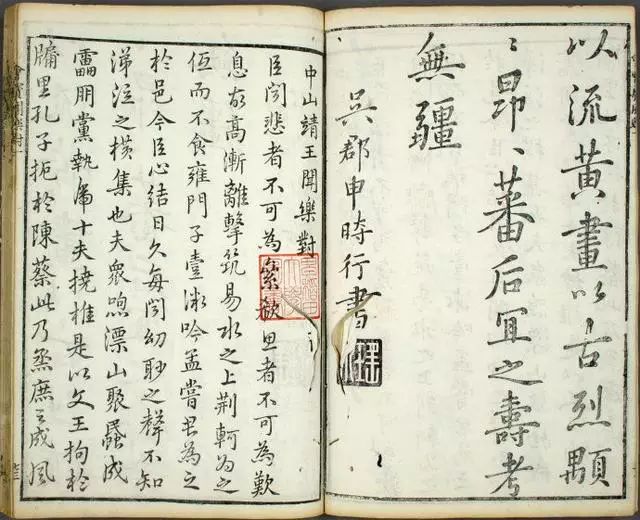 以流黃畫以古烈顒
〻昂〻蕃后冝之壽考
無疆
吳郡申時行書
中山靖王聞樂對
臣聞悲者不可為絫欷思者不可為歎
息故高漸離擊筑易水之上荆軻為之
低而不食雍門子壹微吟孟嘗君為之
於邑今臣心結日久每聞幼眇之聲不知
涕泣之橫集也夫衆喣漂山聚蟁成
靁朋黨執虎十夫橈椎是以文王拘於
牖里孔子扼於陳蔡此乃烝庶之成風